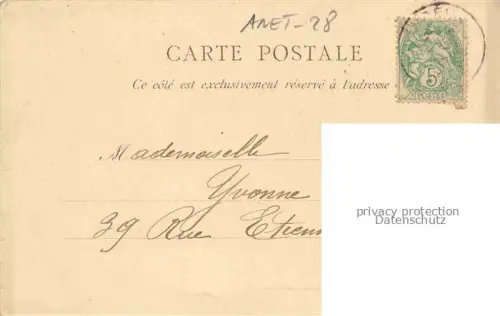 ANET-28
CARTE POSTALE
Ce côté est exclusivement réservé à l'adresse
5
POSTES
Mademoiselle
Yvonne
39 Rue Etienn
privacy protection
Datenschutz